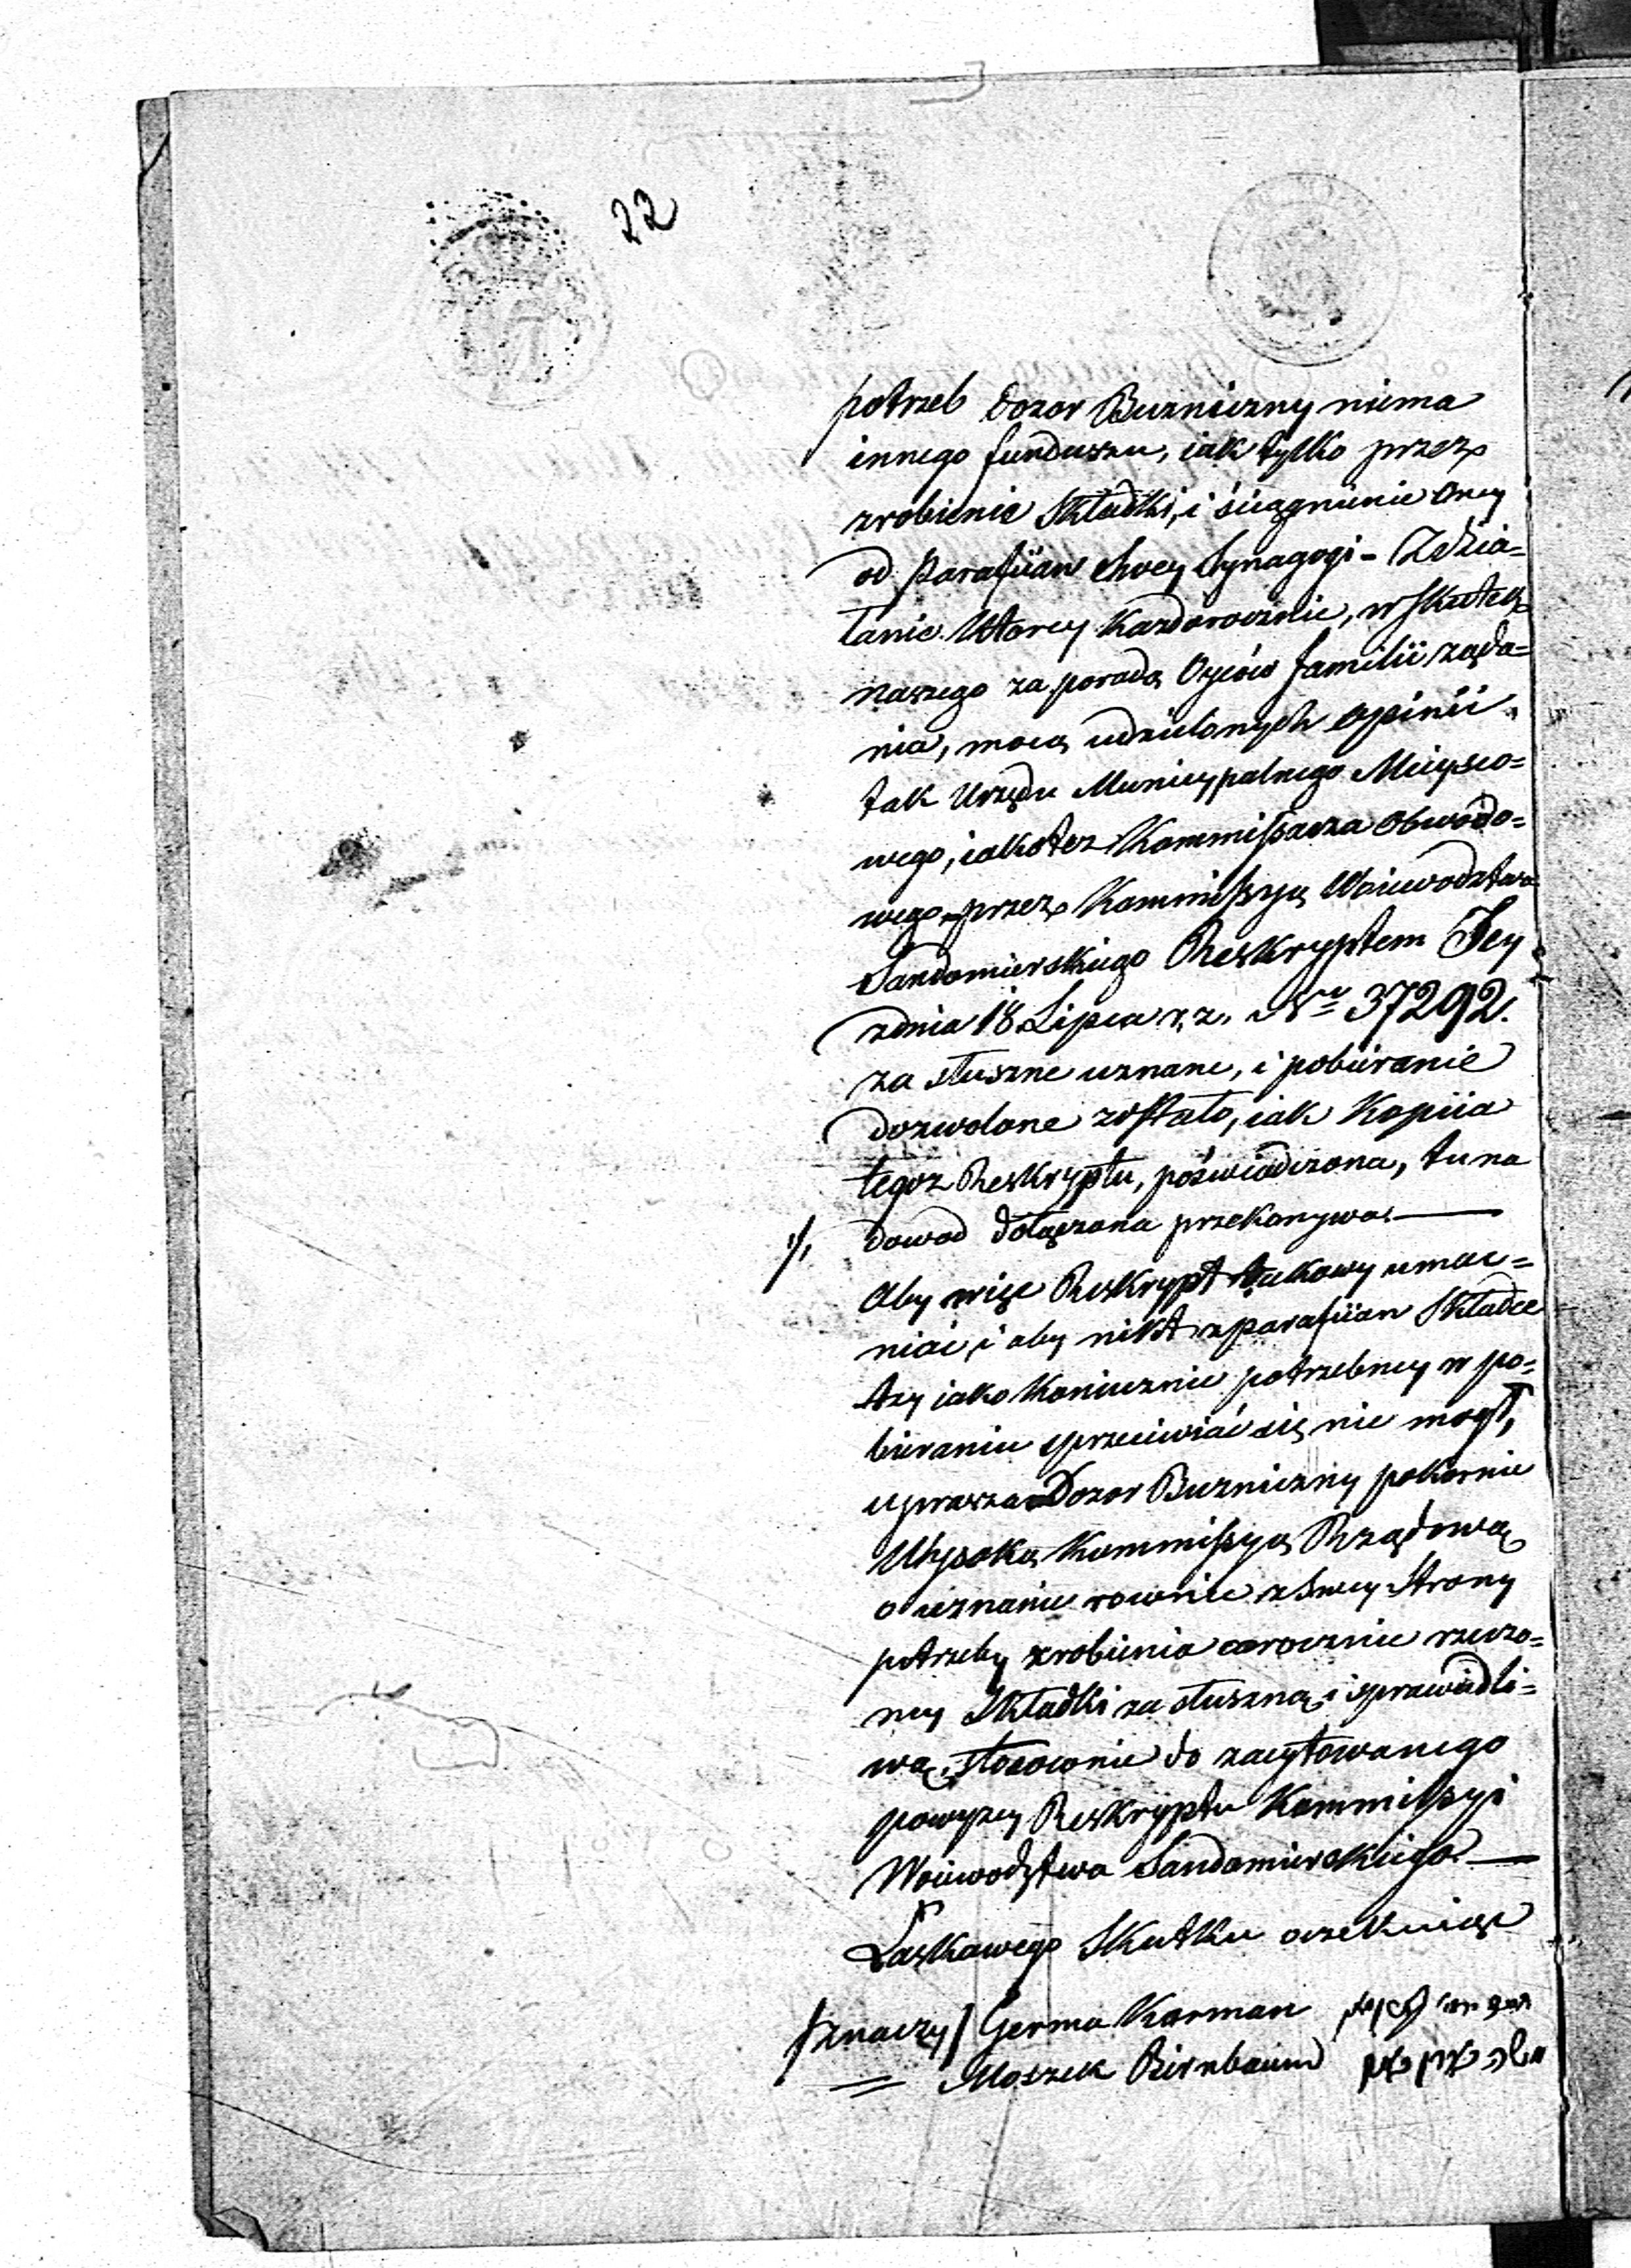 22
potrzeb dozor Bużniczny niema
innego funduszu, iak tylko przez
zrobienie Składki, i ściągnienie oney
od Parafiian Swey Synagogi - Zdzia=
łanie Ktorey każdorocznie, w skutek
naszego za poradą Oyców familii żąda=
nia, mocą udzielonych opinii
tak Urzędu Municypalnego Mieysco=
wego, iakoteż Kommissarza Obwodo=
wego przez Kommissyą Woiewodztwa
Sandomierskiego Reskryptem Jey
z dnia 18 Lipca r. z. Nro 37292.
za słuszne uznane, i pobieranie
dozwolone zostało, iak Kopiia
tegoż Reskryptu, poświadczona, tu na
1/, dowod dołączona przekonywa. —
Aby więc Reskrypt takowy umoc=
nić, i aby nikt z parafiian Składce
tey iako koniecznie potrzebney w po=
bieraniu sprzeciwiać się nie mogł,
uprasza Dozor Bużniczny pokornie
Wysoką Kommissyą Rządową
o uznanie rownie z swey Strony
potrzeby zrobienia corocznie rzeczo=
ney Składki za słuszną i sprawiedli=
wą, stosownie do zacytowanego
powyżey Reskryptu Kommissyi
Woiewodztwa Sandomierskiego. —
Łaskawego Skutku oczekuiąc
/znaczy/ Germa Korman
= Moszek Birnbaum